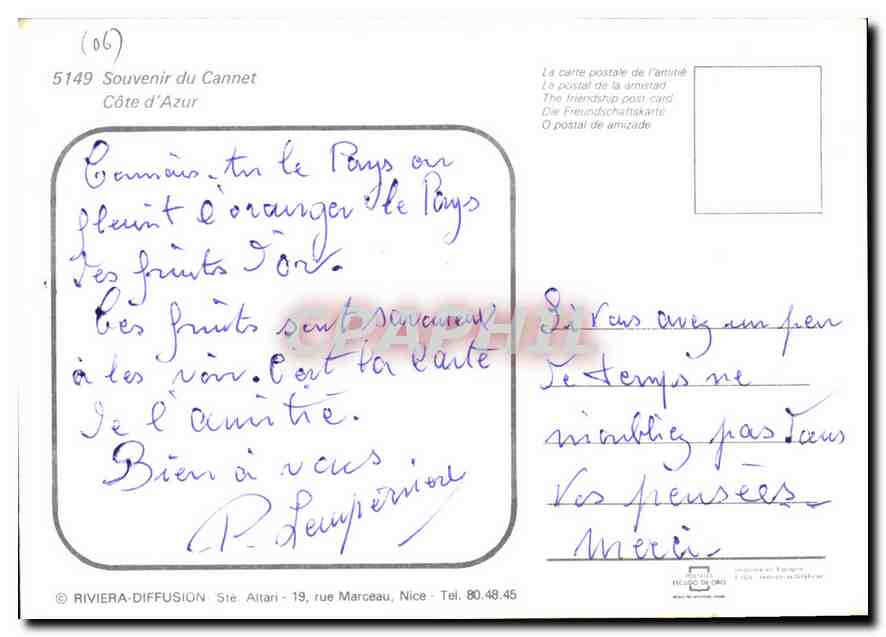 (06)
5149 Souvenir du Cannet
Côte d'Azur
La carte postale de l'amitié
La postal de la amistad
The friendship post card
Die Freundschaftskarte
O postal de amizade
Connais-tu le Pays ou
fleurit l'oranger le Pays
des fruits d'or.
Ces fruits sont savoureux
à les voir. C'est la Carte
de l'amitié.
Bien à vous
P. Lempérière
Si vous avez un peu
de temps ne
m'oubliez pas dans
vos pensées
Merci
CPAPHIL
POSTALES
ESCUDO DE ORO
© RIVIERA-DIFFUSION Sté. Altari - 19, rue Marceau, Nice - Tel. 80.48.45